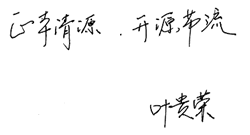 正本清源，开源节流
叶贵荣